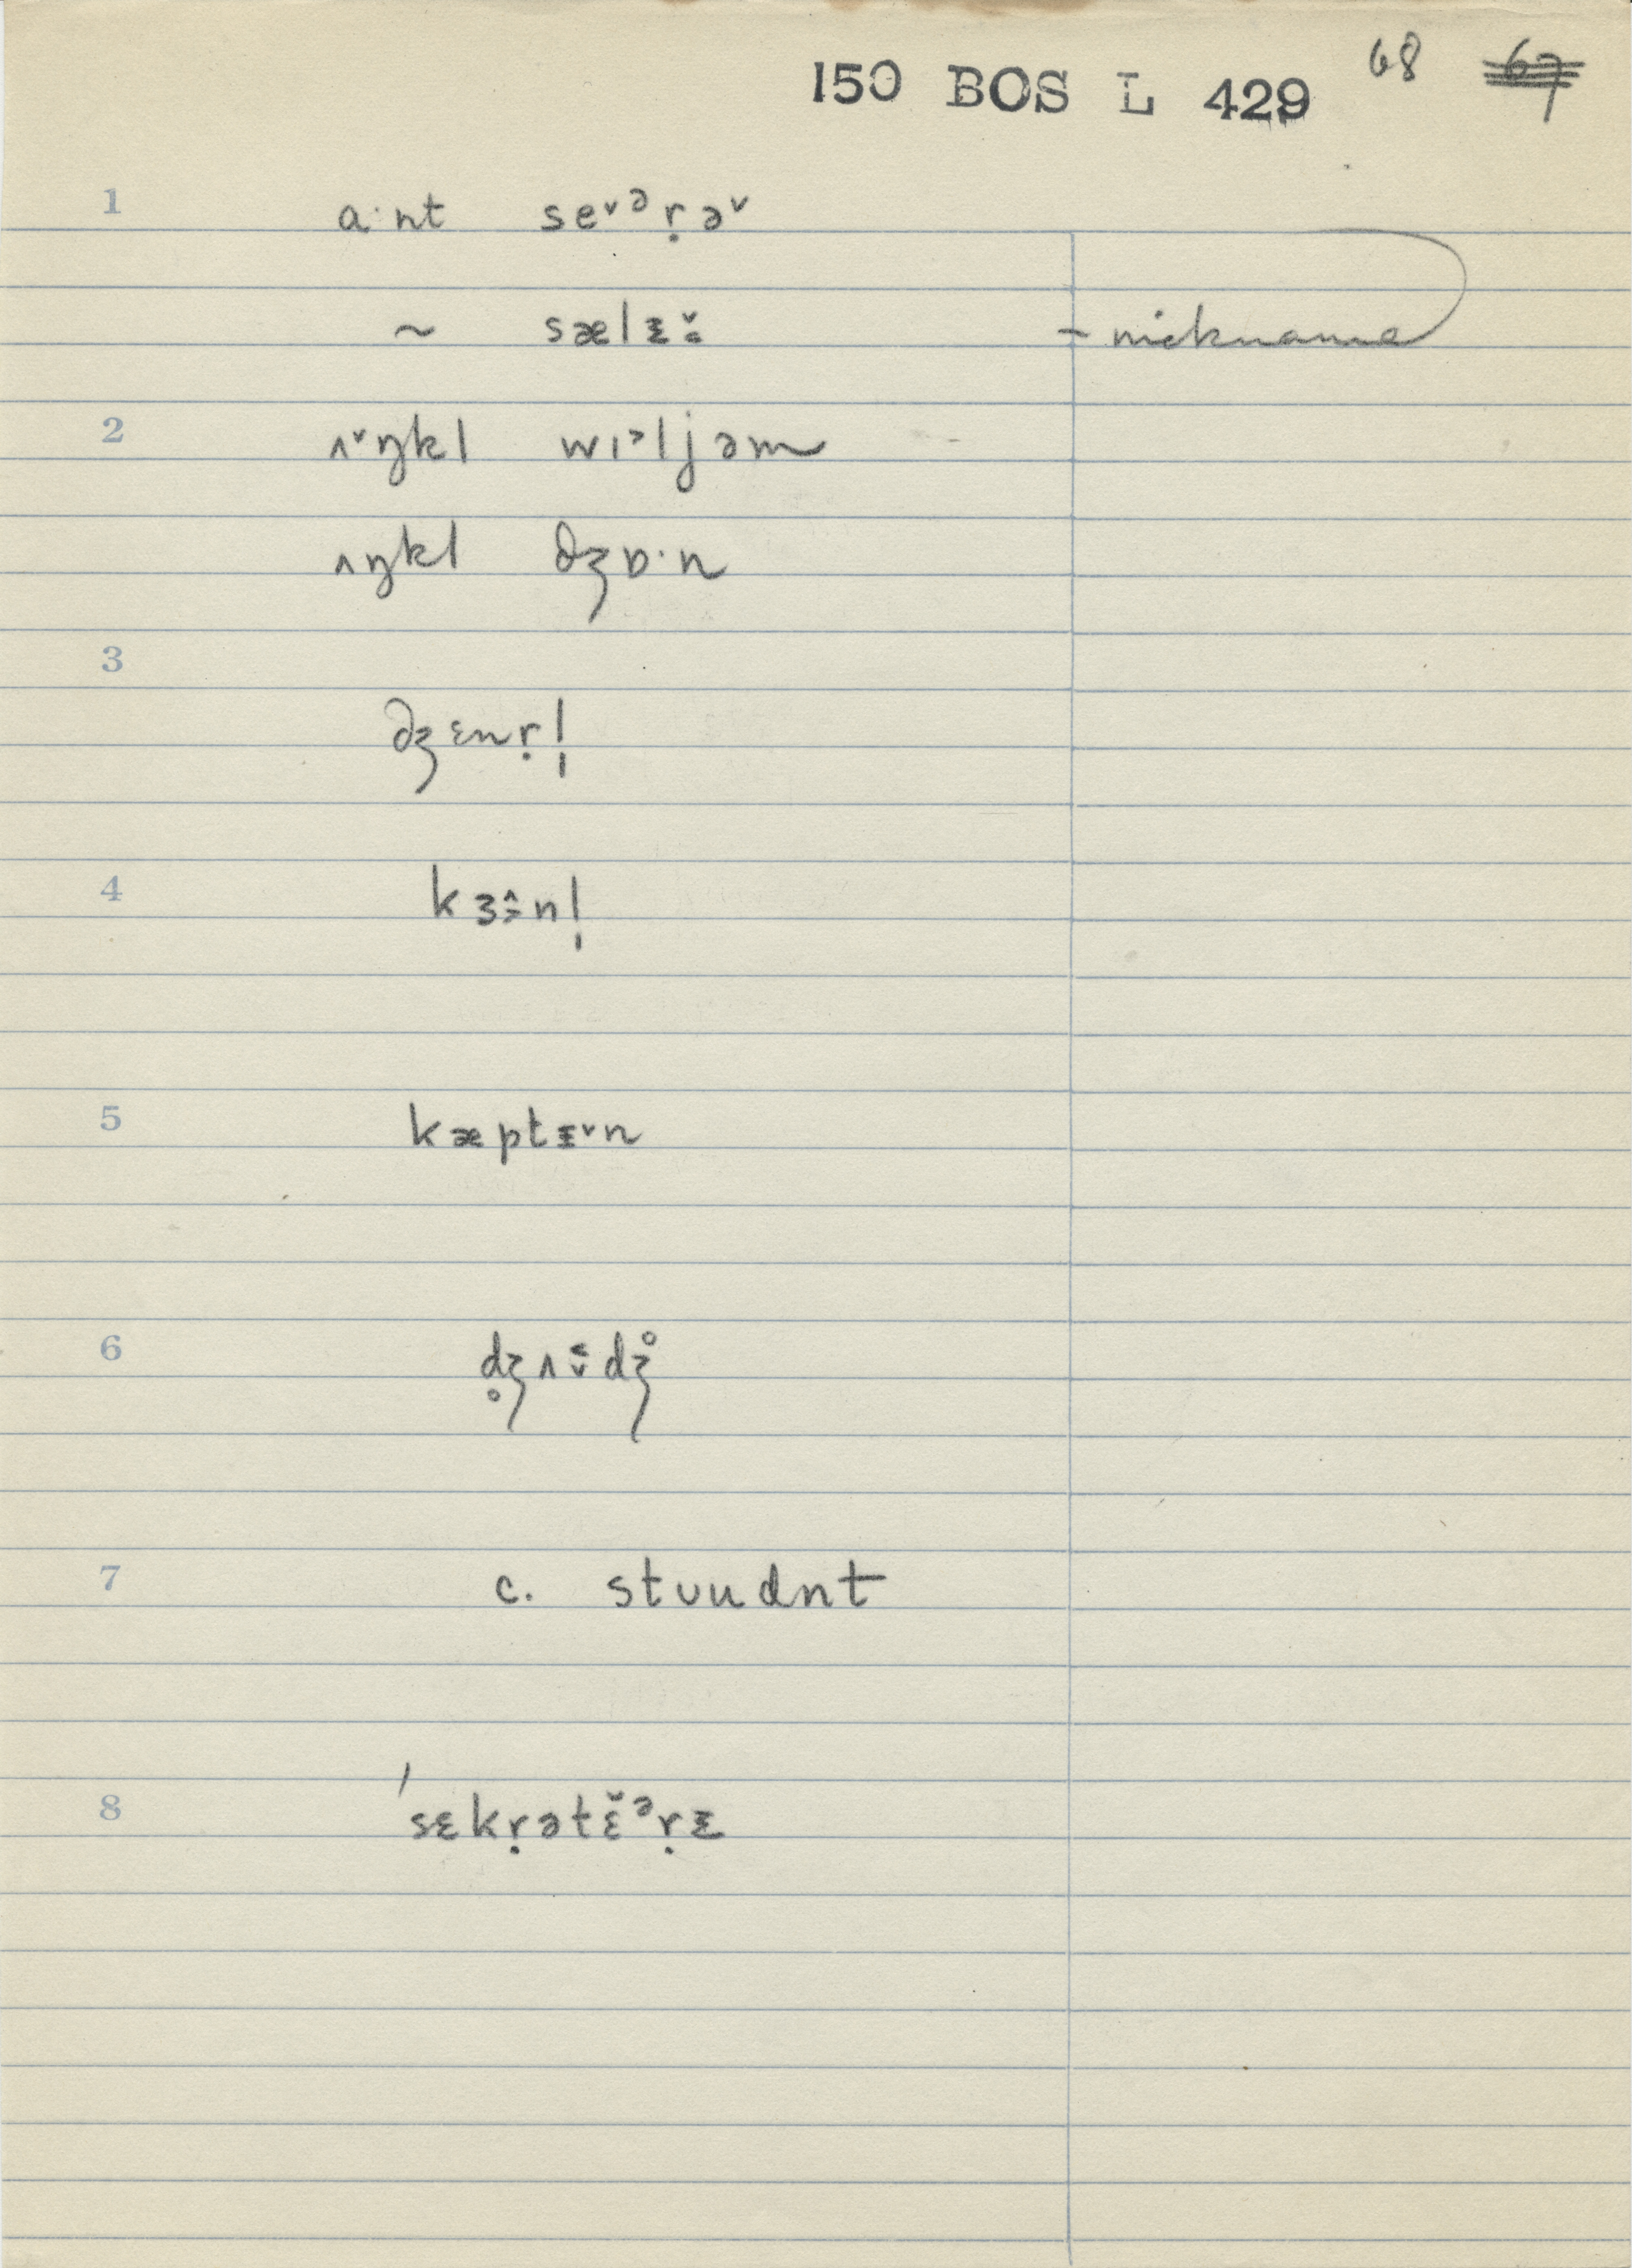 150 BOS L 429 68 67
1 a·nt se˅ᵊṛə˅
~ sælᵻ - nickname
2 ʌ˅ŋkl wɪᵊljəm
ʌŋkl dʒɒ·n
3
dʒɛnṛl̩
4 kɜnl̩
5 kæptᵻ˅n
6 d̥ʒʌdʒ̊
7 c. stʊudnt
8 ˈsɛkṛətɛ̌ᵊṛᵻ